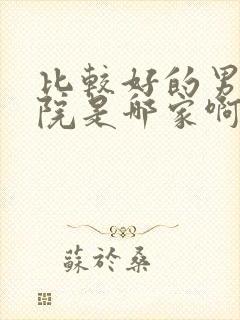 比較好的男
院是哪家啊
蘇於桑